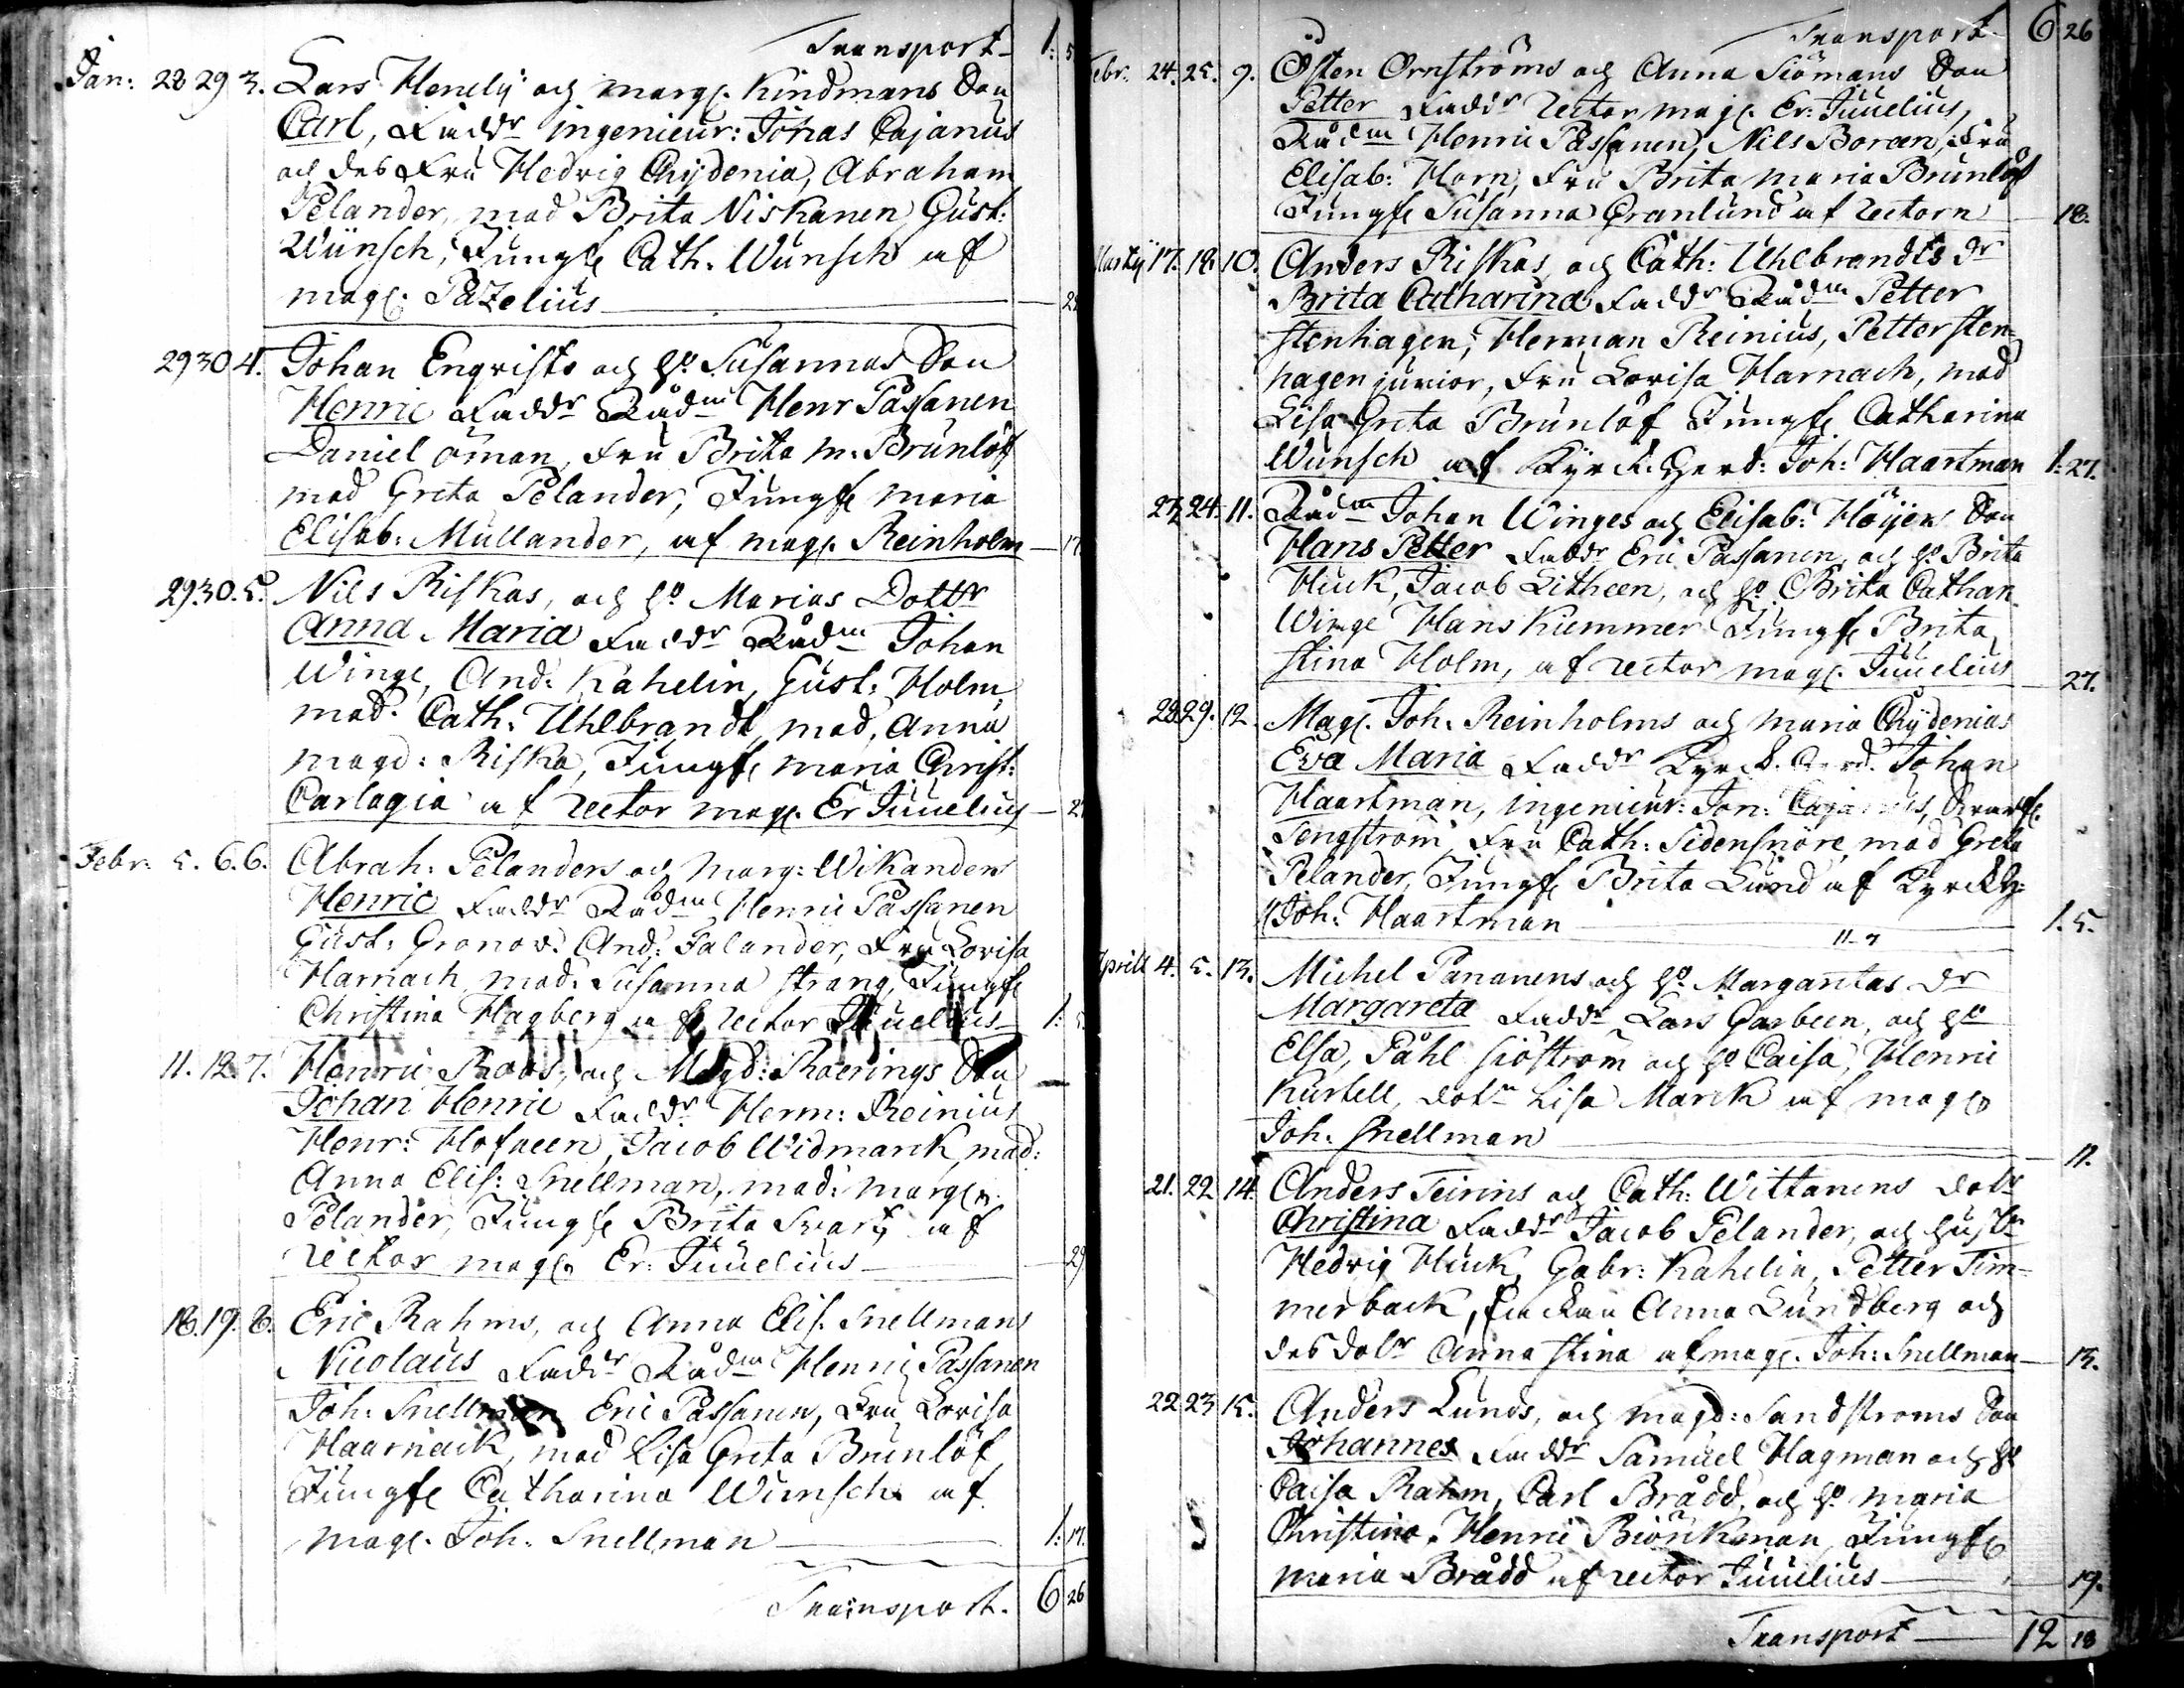 Transport 1: 5
Jan: 28 29 3. Lars Henely och Marg. Kindmans Son
Carl, Faddr ingenieur: Johas Cajanus
och des Fru Hedvig Chydenia, Abraham
Pelander, mad Brita Niskanen Gust:
Wünsch, Jungfr Cath. Wünsch af
mag. Pazelius
29 30 4. Johan Enqvists och ho Susannas Son
Henric Faddr Rådm Henr Passanen
Daniel öman, Fru Brita M. Brunlöf
mad Greta Pelander, Jungfr maria
Elisab: Mullander, af mag. Reinholm 17.
29. 30. 5. Nils Riskas, och ho Marias Dottr
Anna Maria Faddr Rådm Johan
Winge, And: Kahelin, Gust: Holm
mad. Cath: Uhlbrandt, mad, Anna
magd: Riska, Jungfr maria Christ:
Carlagia af rector mag. Er Juuelius
Febr: 5. 6. 6. Abrah: Pelanders och Marg: Wikanders
Henric Faddr Rådm Henric Passanen
Gust: Gronow. And: Falander, Fru Lovisa
Harnach, mad: Susanna Strang, Jungfr
Christina Hagberg af rector Juuelius 1: 5.
11. 12. 7. Henric Roos, och Magd: Roerings Son
Johan Henric Faddr Herm: Reinius
Henr: Hofreen, Jacob Widmark, mad:
Anna Elis: Snellman, mad: marg.
Pelander, Jungfr Brita Svartz af
rector mag. Er: Juuelius 29
18. 19. 8. Eric Rahms, och Anna Elis. Snellmans
Nicolaus Faddr Rådm Henric Passanen
Joh: Snellman Eric Passanen, Fru Lovisa
Haarnack, mad Lisa Greta Brunlöf
Jungfr Catharina Wunsch af
mag. Joh. Snellman 1: 17.
Transport. 6 26
Transport. 6 26
Febr: 24. 25. 9. Östen Örnströms och Anna Siömans Son
Petter Faddr rector mag. Er: Juuelius,
Rådm Henric Passanen, Nils Boreen, Fru
Elisab: Horn, Fru Brita Maria Brunlöf
Jungfr Susanna Granlund af rectorn 18.
Martij 17. 18. 10. Anders Riskas, och Cath: Uhlbrandts Dr
Brita Catharina Faddr Rådm Petter
Stenhagen, Herman Reinius, Petter Sten
hagen junior, Fru Lovisa Harnach, mad
Lisa Greta Brunlöf Jungfr Catharina
Wunsch af Kyrck. Herd: Joh: Haartman 1: 27.
23 24. 11. Rådm Johan Winges och Elisab: Höijers Son
Hans Petter Faddr Eric Passanen, och ho Brita
Huck, Jacob Litheen, och ho Brita Cathar.
Winge Hans Kummer Jungfr Brita
Stina Holm, af rector mag. Juuelius 27.
28. 29. 12. Mag. Joh: Reinholms och Maria Chydenias
Eva Maria Faddr Kyrck. Herd: Johan
Haartman, ingenieur: Jon: Cajanus,
Tengström, Fru Cath: Sidensnöre, mad Greta
Pelander, Jungfr Brita Lund af Kyrck h:
Joh: Haartman 1. 5.
Aprill 4. 5. 13. Michel Pananens och ho Margaretas Dr
Margareta Faddr Lars Garbeen, och ho
Elsa, Påhl Siöström och ho Caisa, Henric
Kurtell, dotr Lisa Marck af mag
Joh: Snellman 11.
21. 22 14. Anders Teirins och Cath: Wittanens dotr
Christina Faddr Jacob Pelander, och hustr
Hedvig Huck, Gabr: Kahelin, Petter Tim=
merback, Enckan Anna Lundberg och
des dotr Anna Stina af mag. Joh: Snellman 15.
22 23 15. Anders Lunds, och magd: Sandströms Son
Johannes Faddr Samuel Hagman och ho
Caisa Rahm, Carl Brådd, och ho maria
Christina, Henric Biörkman, Jungfr
Maria Brådd af rector Juuelius 19.
Transport 12 18